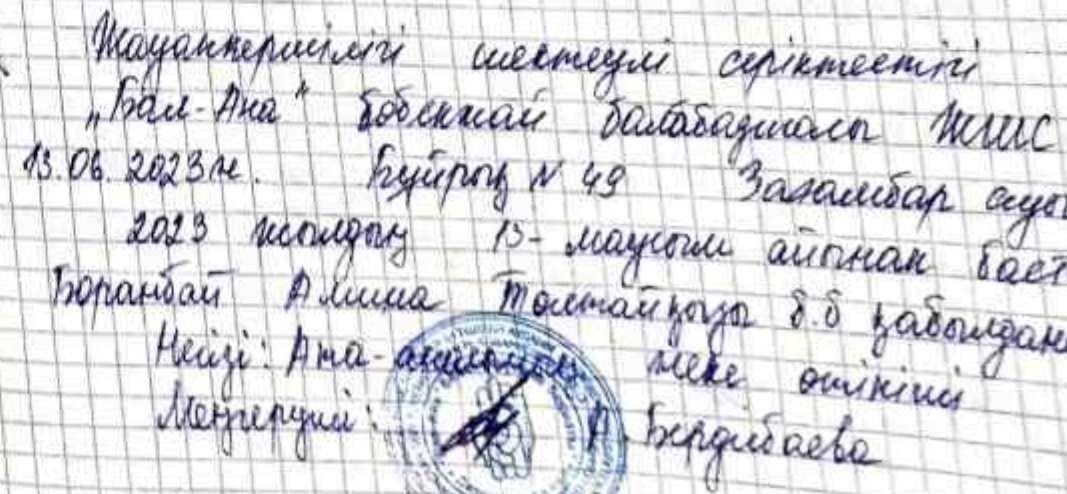 Жауапкершілігі шектеулі серіктестігі
„Бал-Ана" бөбекжай балабақшасы ЖШС
13.06.2023ж. Бұйрық N 49 Зағамбар ауы
2023 жылдың 13- маусым айынан баст
Боранбай Алина Толтайқызы б.б қабылдан
Негізі: Ата-анасының жеке өтініші
Меңгеруші: А. Бердібаева